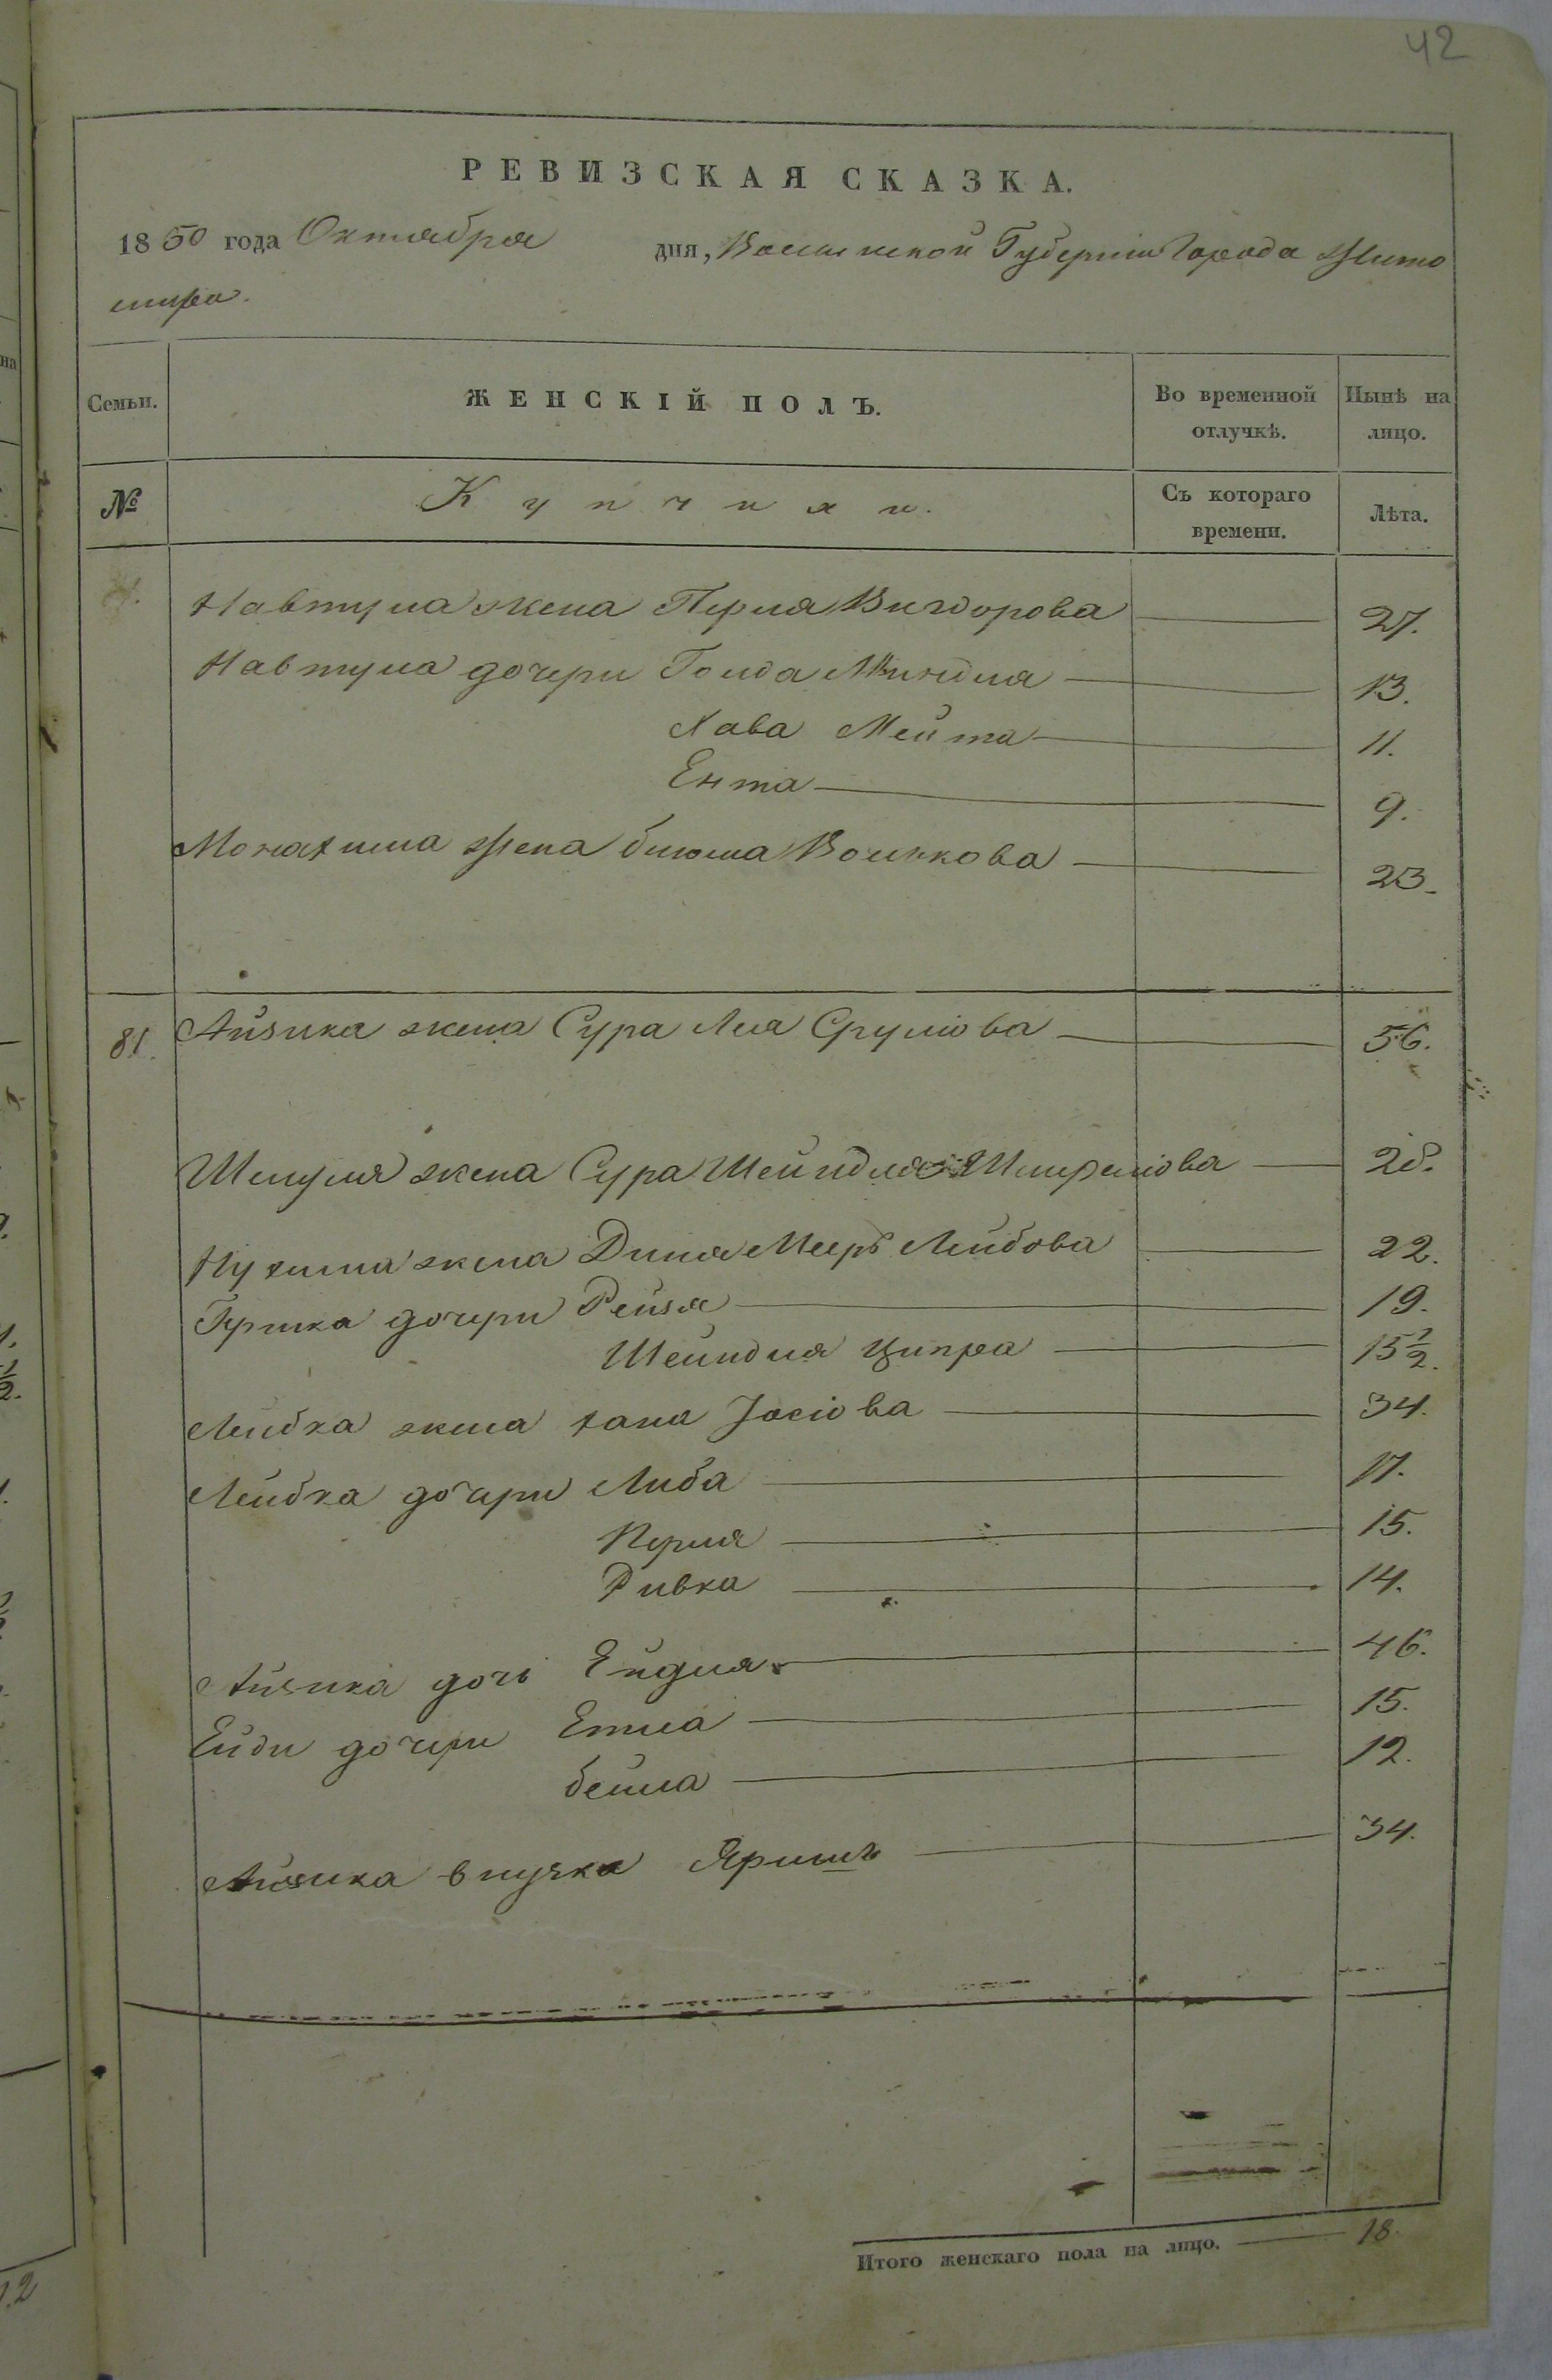 42
РЕВИЗСКАЯ СКАЗКА.
1850 года Октября дня, Волынской Губернии Города Жито
мира.
Семьи. ЖЕНСКІЙ ПОЛЪ. Во временной отлучкѣ. Нынѣ на лицо.
№ Съ котораго времени. Лѣта.
Навтула жена Перля Вигдорова 27.
Навтула дочери Голда Миндля 13.
Хава Мейта 11.
Ента 9.
Монахима жена блюма Волькова 23.
81. Айзика жена Сура Лея Сруліова 56.
Шмуля жена Сура Шейндля 28.
Нухима жена Диня Меерь Лейбова 22.
Гершка дочери Рейзя 19.
Шейндля Ципра 15 1/2.
Лейбка жена хана Іосіова 34.
Лейбка дочери Либа 17.
Перля 15.
Ривка 14.
Айзика дочь Ейдля 46.
Ейди дочери Етла 15.
бейла 12.
Айзика внучка 34.
Итого женскаго пола на лицо. 18.
12